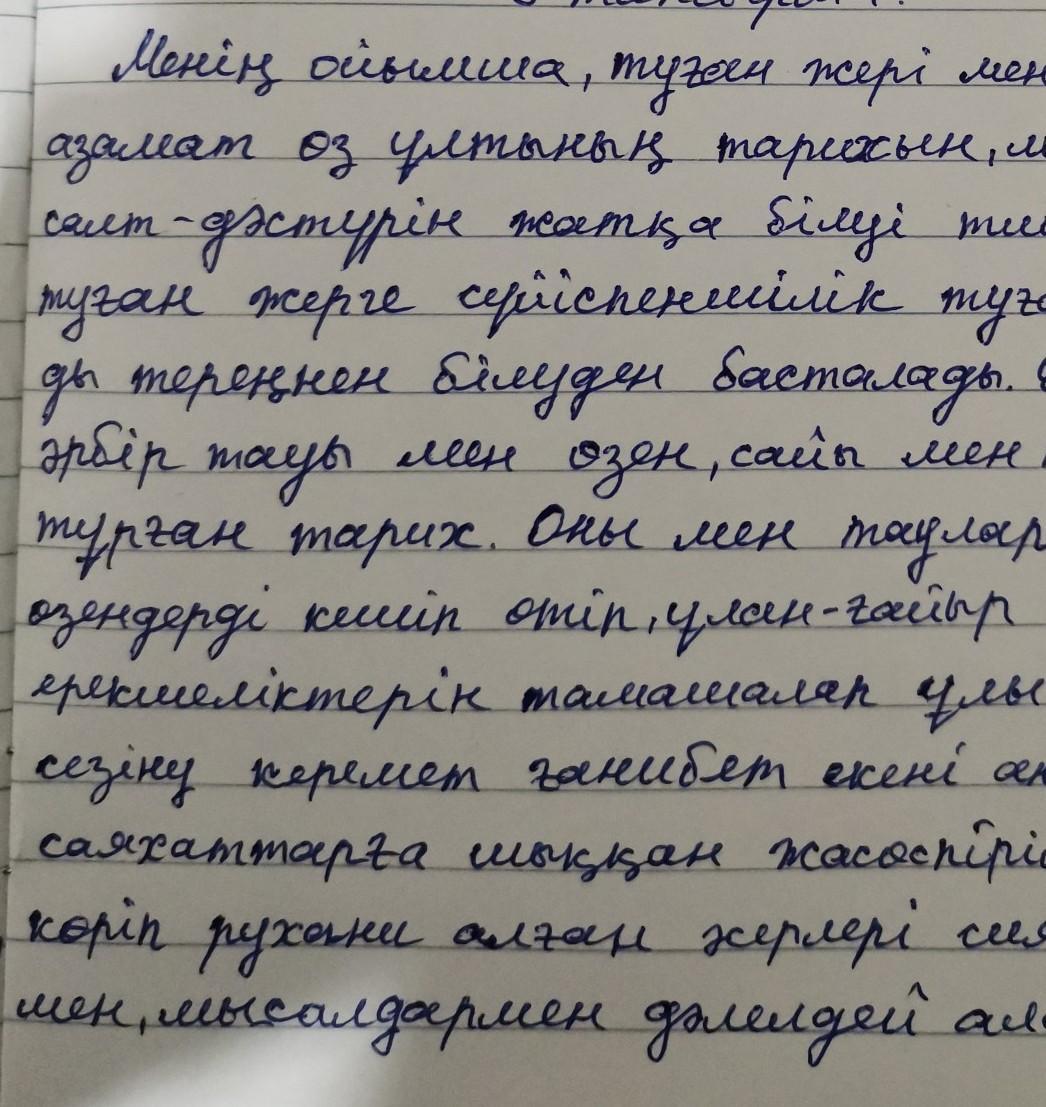 Менің ойымша, туған жері мен
азамат өз ұлтының тарихын,
салт-дәстүрін жатқа білуі
туған жерге сүйіспеншілік
ды тереңнен білуден басталады.
әрбір тауы мен өзен, сайы мен
тұрған тарих. Оны мен таулар
өзендерді кешіп өтіп, ұлан-ғайыр
ерекшеліктерін тамашалап ұлы
сезіну керемет ғанибет екені
саяхаттарға шыққан жасөспірі
көріп рухани алған жерлері
мен, мысалдармен дәлелдей ал